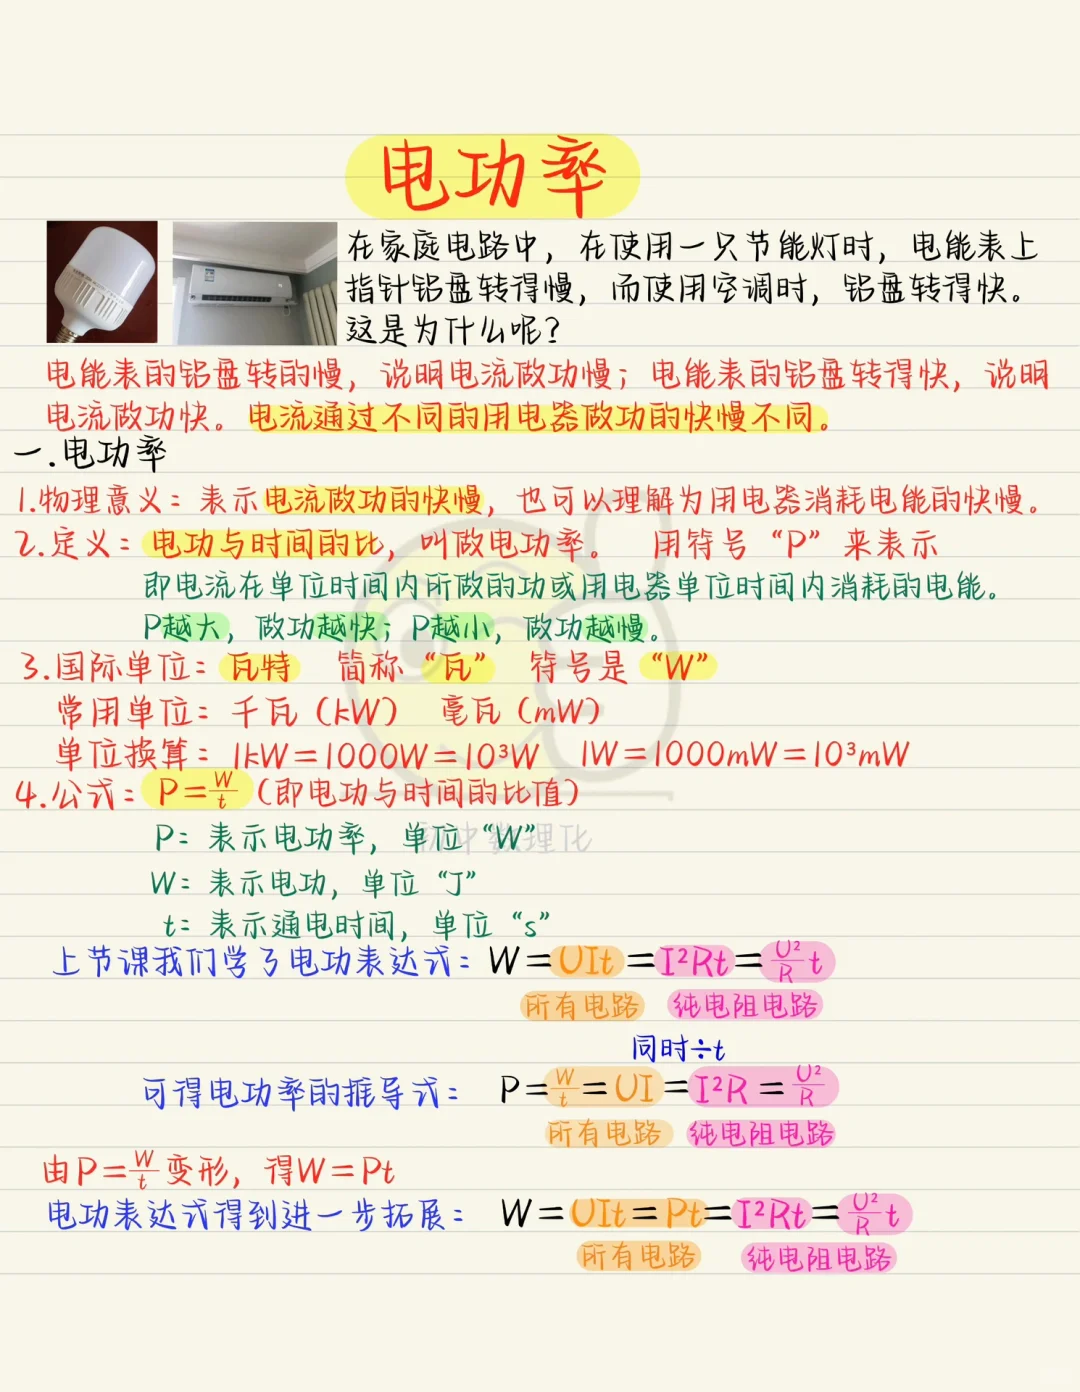 电功率
在家庭电路中，在使用一只节能灯时，电能表上
指针铝盘转得慢，而使用空调时，铝盘转得快。
这是为什么呢？
电能表的铝盘转的慢，说明电流做功慢；电能表的铝盘转得快，说明
电流做功快。电流通过不同的用电器做功的快慢不同。
一.电功率
1.物理意义：表示电流做功的快慢，也可以理解为用电器消耗电能的快慢。
2.定义：电功与时间的比，叫做电功率。 用符号“P”来表示
即电流在单位时间内所做的功或用电器单位时间内消耗的电能。
P越大，做功越快；P越小，做功越慢。
3.国际单位：瓦特 简称“瓦” 符号是“W”
常用单位：千瓦（kW） 毫瓦（mW）
单位换算：1kW=1000W=10³W 1W=1000mW=10³mW
4.公式：P=W/t（即电功与时间的比值）
P：表示电功率，单位“W”
初中数理化
W：表示电功，单位“J”
t：表示通电时间，单位“s”
上节课我们学了电功表达式：W=UIt=I²Rt=U²/R t
所有电路 纯电阻电路
同时÷t
可得电功率的推导式：P=W/t=UI=I²R=U²/R
所有电路 纯电阻电路
由P=W/t变形，得W=Pt
电功表达式得到进一步拓展：W=UIt=Pt=I²Rt=U²/R t
所有电路 纯电阻电路